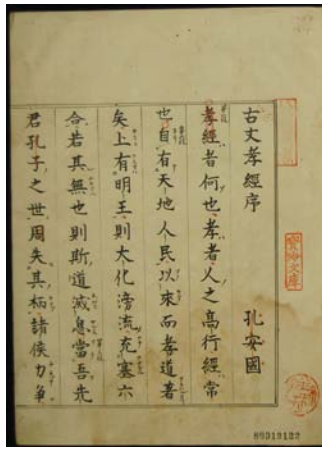 古文孝經序 孔安國
孝經者何也孝者人之高行經常
也自有天地人民以來而孝道著
矣上有明王則大化滂流充塞六
合若其無也則斯道滅息當吾先
君孔子之世周失其柄諸侯力爭